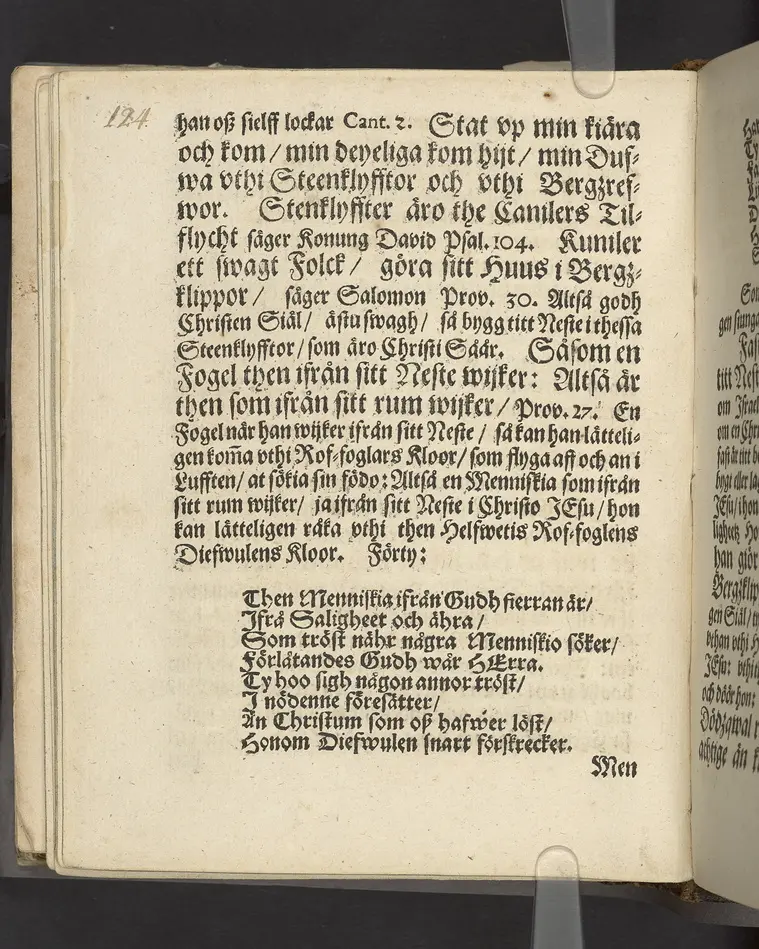 124
han oß sielff lockar Cant. 2. Stat vp min kiära
och kom / min deyeliga kom hijt / min Duf-
wa vthi Steenklyfftor och vthi Bergzref-
wor. Stenklyffter äro the Canilers Til-
flycht säger Konung David Psal. 104. Kuniler
ett swagt Folck / göra sitt Huus i Bergz-
klippor / säger Salomon Prov. 30. Altså godh
Christen Siäl / ästu swagh / så bygg titt Neste i thessa
Steenklyfftor / som äro Christi Såår. Såsom en
Fogel then ifrån sitt Neste wijker: Altså är
then som ifrån sitt rum wijker / Prov. 27. En
Fogel när han wijker ifrån sitt Neste / så kan han lätteli-
gen kom̃a vthi Rof-foglars Kloor / som flyga aff och an i
Lufften / at sökia sin födo: Altså en Menniskia som ifrån
sitt rum wijker / ja ifrån sitt Neste i Christo JEsu / hon
kan lätteligen råka vthi then Helfwetis Rof-foglens
Diefwulens Kloor. Förty:
Then Menniskia ifrån Gudh fierran är /
Ifrå Saligheet och ähra /
Som tröst nähr några Menniskio söker /
Förlåtandes Gudh wår HErra.
Ty hoo sigh någon annor tröst /
I nödenne föresätter /
Än Christum som oß hafwer löst /
Honom Diefwulen snart förskrecker.
Men